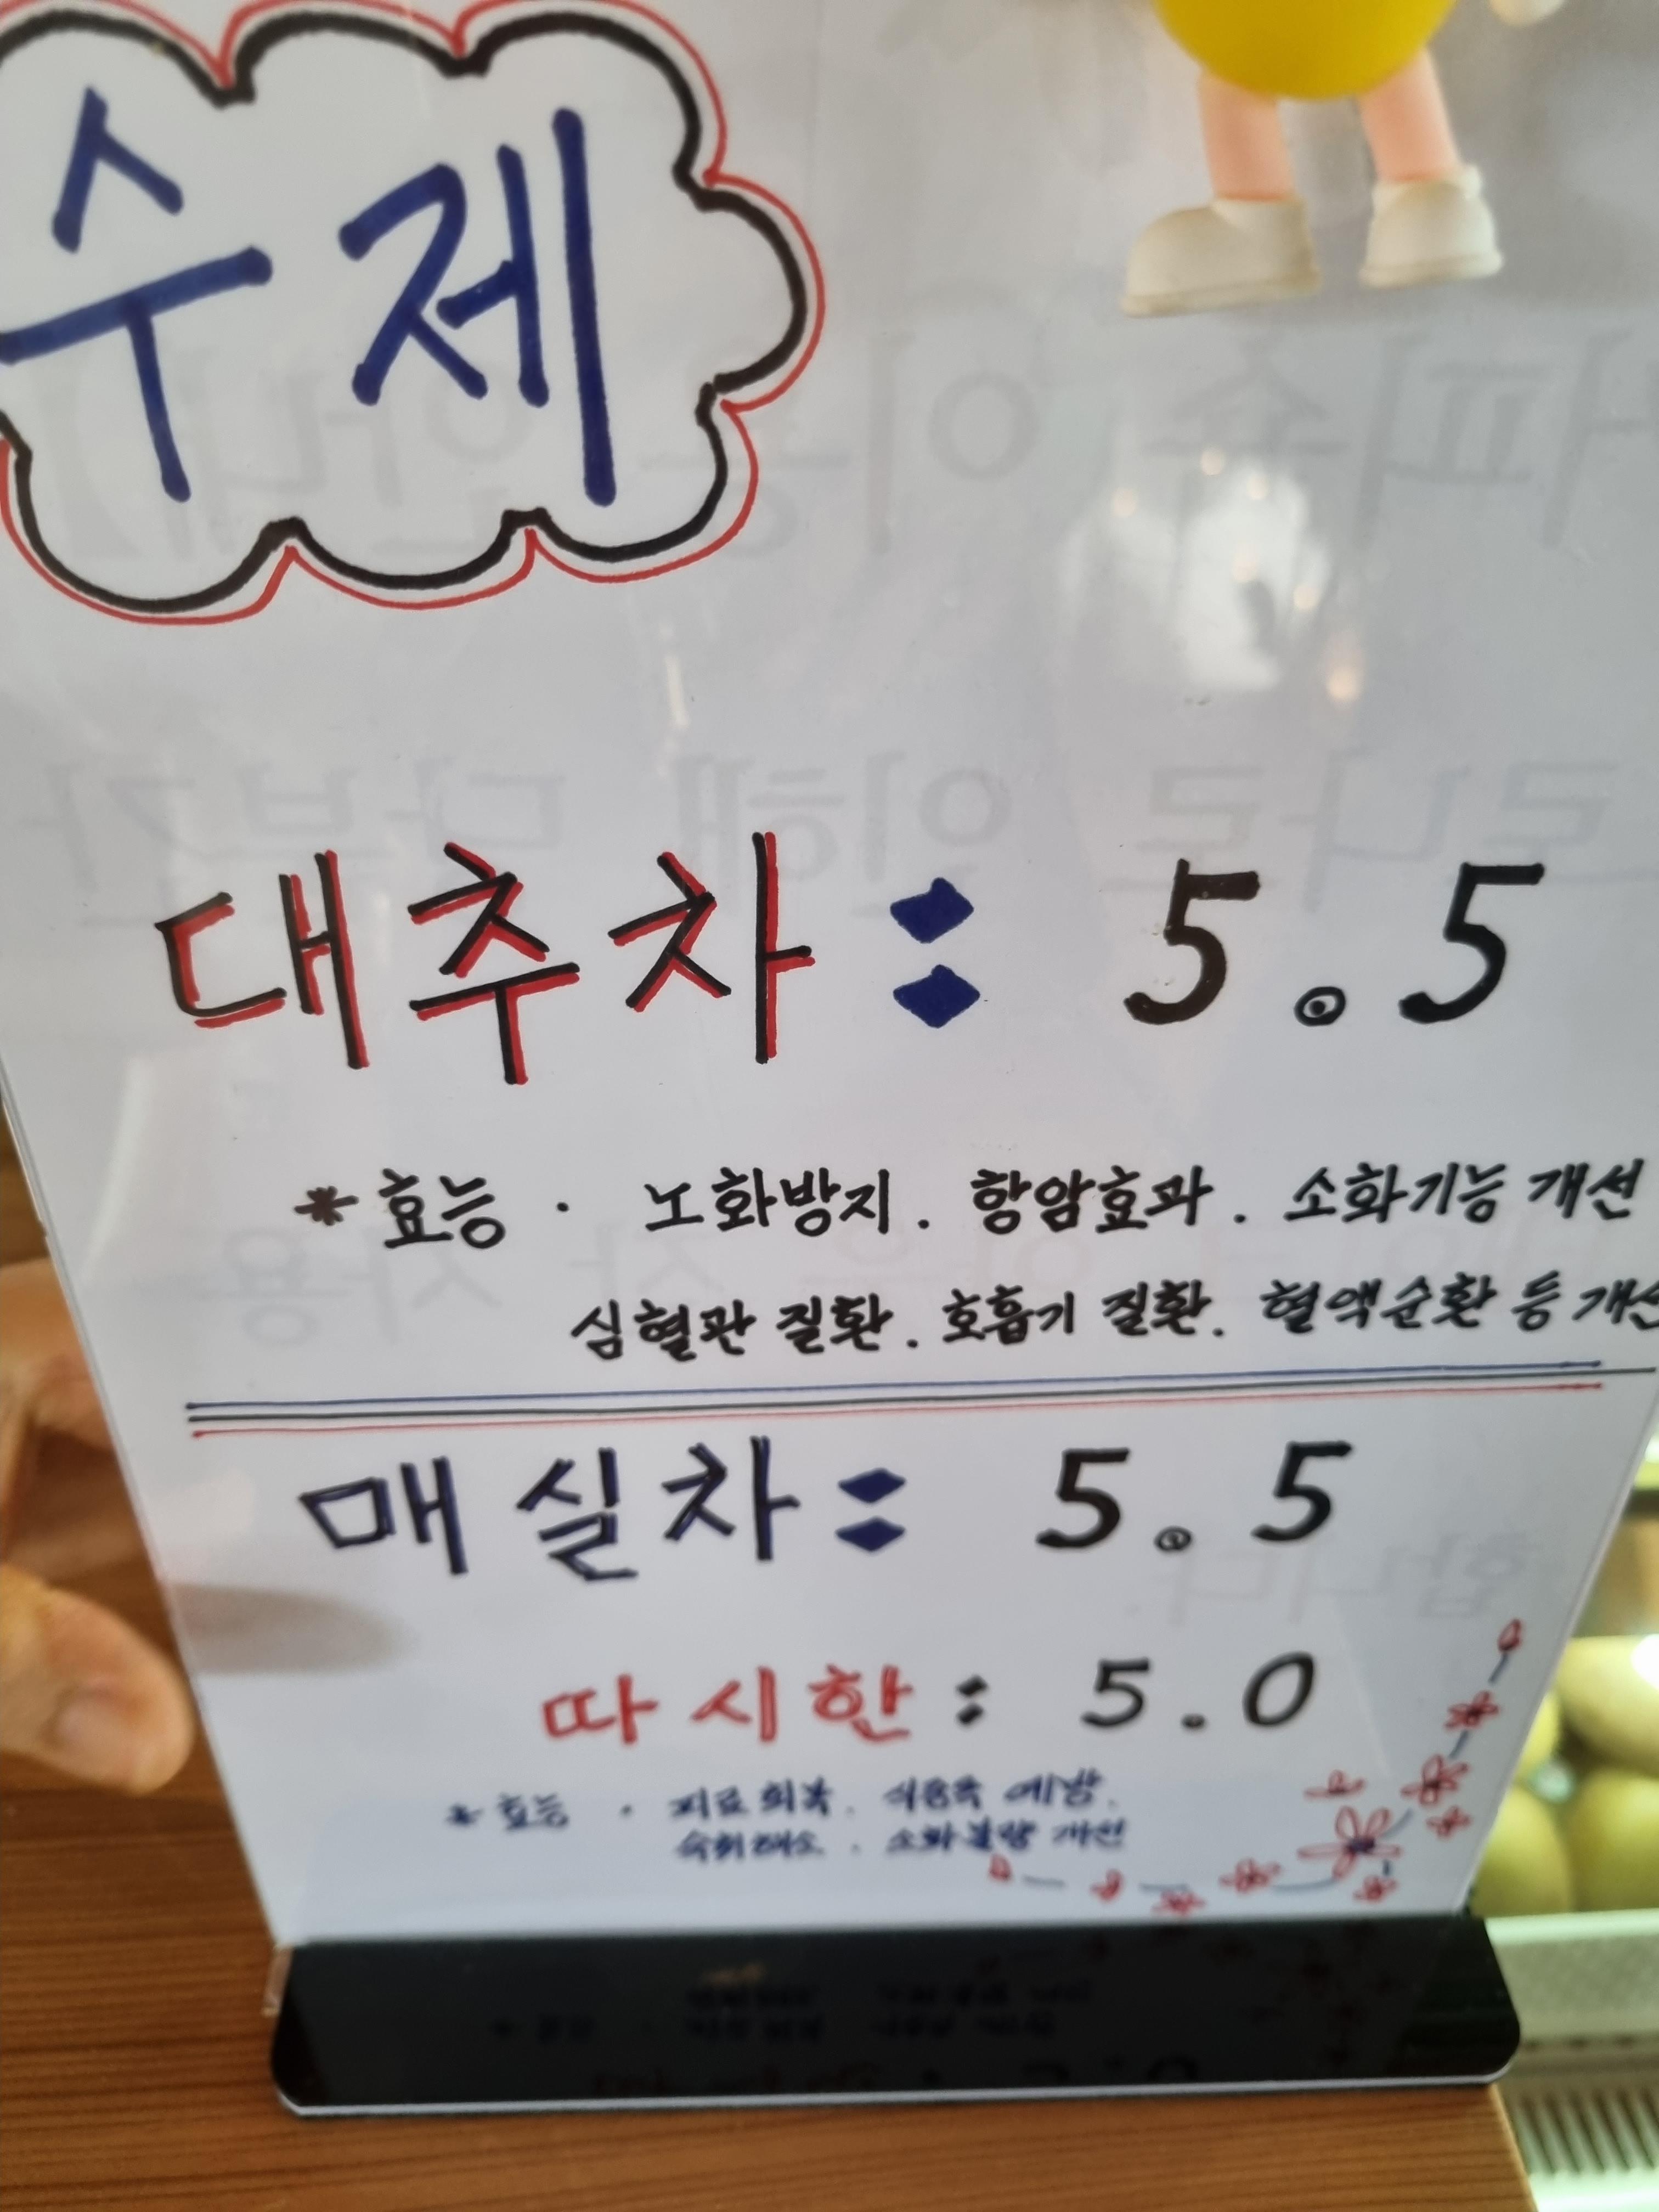 수제
대추차: 5.5
*효능 · 노화방지. 항암효과. 소화기능 개선
심혈관 질환. 호흡기 질환. 혈액순환 등 개선
매실차: 5.5
따시한: 5.0
*효능 · 피로회복. 식중독 예방.
숙취해소. 소화불량 개선